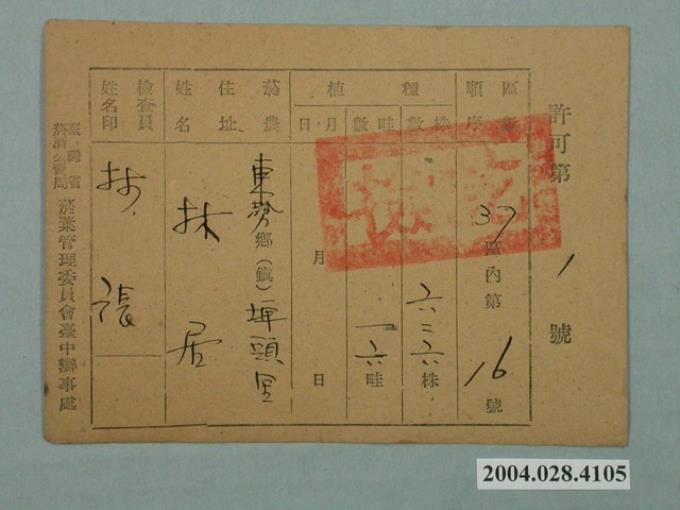 許可第 1 號
區數 順序 37 區內第 16 號
種植
株數 六三六株
畦數 一六畦
月.日 月 日
菸農住址 東勢鄉(鎮)埤頭里
姓名 林 居
檢查員姓名印 張
臺灣省菸酒公賣局菸葉管理委員會臺中辦事處
2004.028.4105